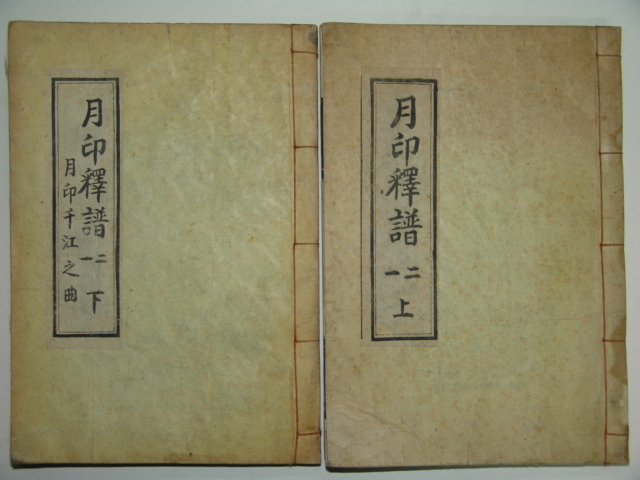 月印釋譜
一二
上
月印釋譜
一二
下
月印千江之曲